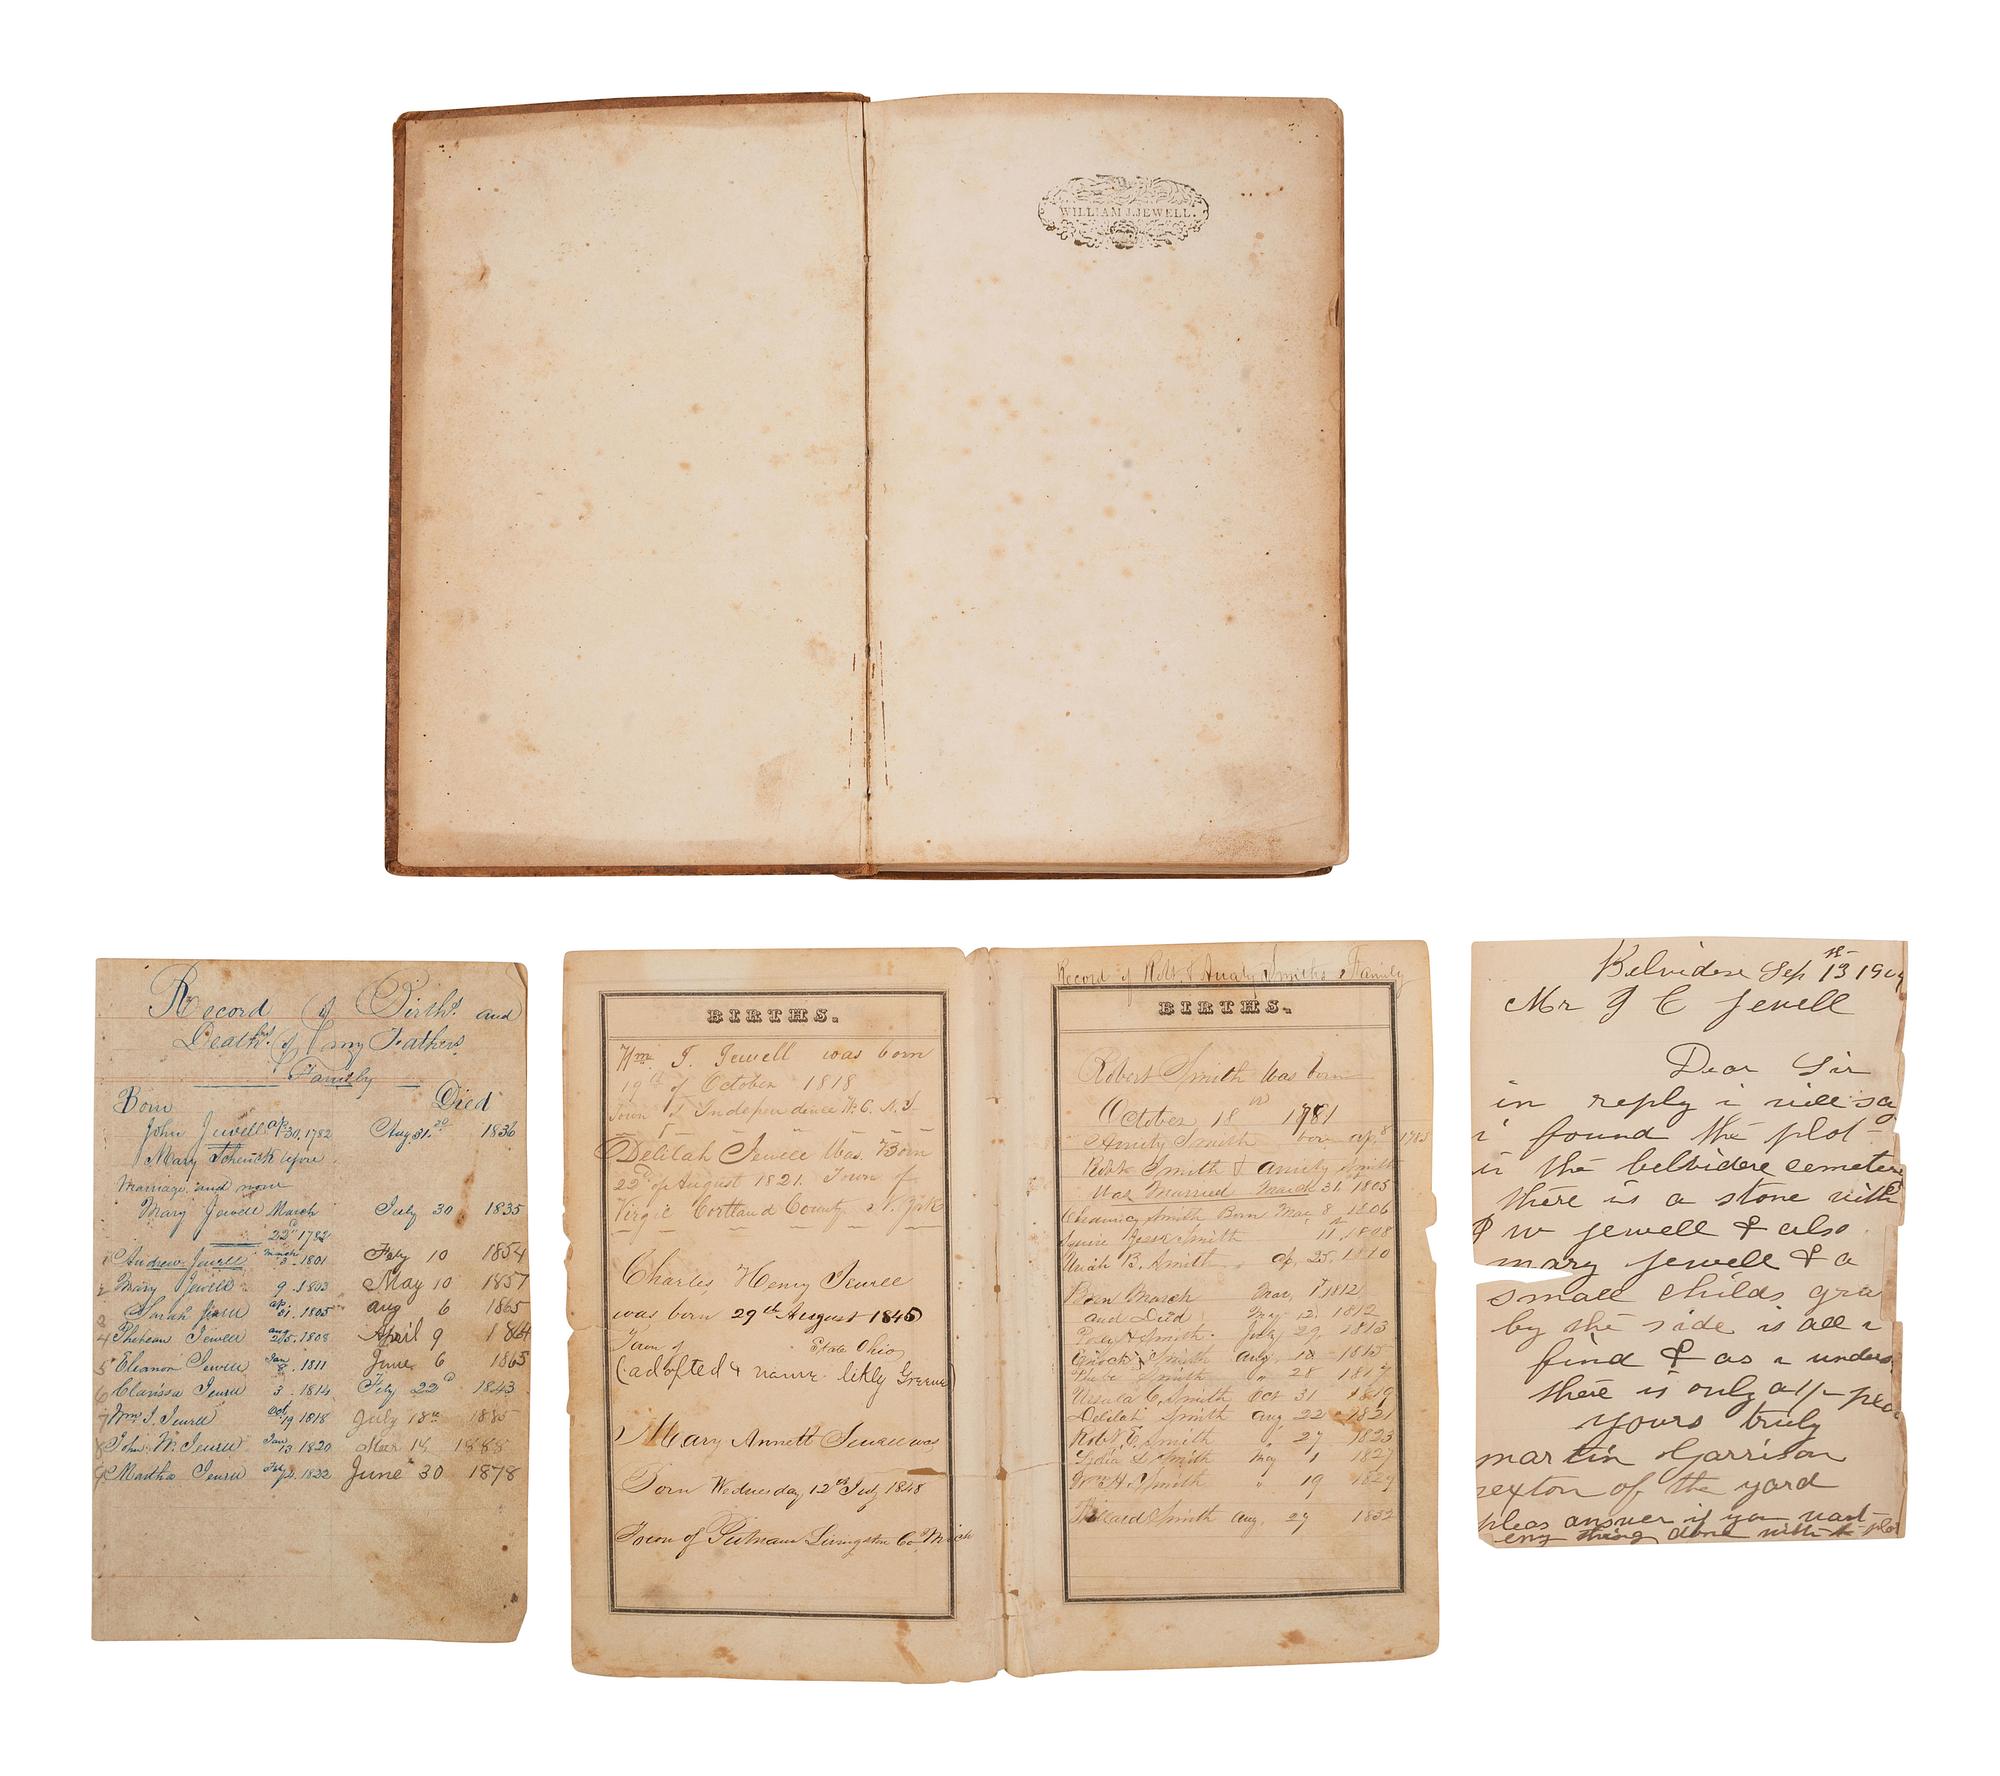 WILLIAM J. JEWELL.
Record of Births and
Deaths of my Fathers
Family
Born Died
John Jewell ap 30, 1782 Aug 31. 1836
Mary Schenck before
Marriage and now
Mary Jewell March July 30 1835
22d 1782
1 Andrew Jewell March 3. 1801 Feby 10 1854
2 Mary Jewell 9. 1803 May 10 1857
3 Sarah Jewell ap 21. 1805 aug 6 1865
4 Jewell aug 1808 April 9
5 Eleanor Jewell Jan 8. 1811 June 6 1865
6 Clarissa Jewell 3. 1814 Feby 22d 1843
7 Wm J. Jewell Oct 19 1818 July 18th 1885
8 John W. Jewell Jan 13 1820 Mar 14 1888
9 Martha Jewell 1822 June 30 1878
BIRTHS.
Wm. J. Jewell was born
19th of October 1818
Town of Independence W. C. N. J.
Delilah Jewell Was Born
22d of August 1821. Town of
Virgil Cortland County N. York
Charles Henry Jewell
was born 29th August 1845
Town of State Ohio
(adopted & name likly Greene)
Mary Annett Jewell was
Born Wednesday 12th July 1848
Town of Putnam Livingston Co Mich
Record of Robt. & Smiths Family
BIRTHS.
Robert Smith Was born
October 18th 1781
Amity Smith born ap. 8 1785
Robt Smith & Amity Smith
Was Married March 31. 1805
Chauncy Smith Born May 8 1806
Squire Smith 11. 1808
Uriah B. Smith ap. 25. 1810
Born March May 1 1812
and Died May 12 1812
Polly H Smith. July 29. 1813
Enoch Smith aug. 18 1815
Smith " 28 1817
Ursula C. Smith Oct 31 1819
Delilah Smith aug 22 1821
Robt. E. Smith " 27 1823
Lydia L Smith May 1 1827
Wm H. Smith " 19 1829
Smith aug. 29 1832
Belvidere Sep 13th
Mr J C Jewell
Dear Sir
in reply i will say
i found the plot
in the belvidere
there is a stone with
J W Jewell & also
mary Jewell & a
small childs
by the side is all i
find & as i
there is only a
yours truly
martin Garrison
sexton of the yard
pleas answer if you want
eny thing done with